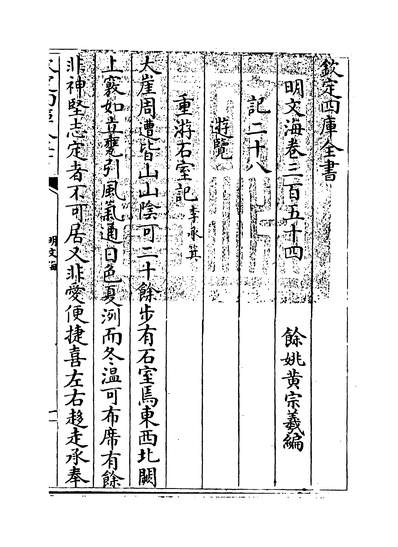 欽定四庫全書
明文海卷三百五十四
餘姚黃宗羲編
記二十八
遊覽
重游石室記李承箕
大崖周遭皆山山陰可二十餘步有石室焉東西北闕
上竅如盎甕引風氣通日色夏冽而冬溫可布席有餘
非神堅志定者不可居又非愛便捷喜左右趨走承奉
明文海